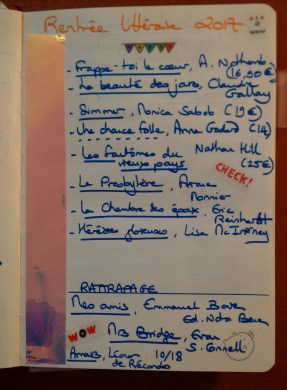 Rentrée littéraire 2017
- Frappe-toi le cœur, A. Nothomb
(16,90€)
- La beauté des jours, Claudie
Gallay
- Summer, Monica Sabolo (19€)
- Une chance folle, Anne Godard (14)
- Les fantômes du Nathan Hill
vieux pays (25€)
CHECK!
- Le Presbytère, Ariane
Monnier
- La Chambre des époux, Eric
Reinhardt
- Hérésies glorieuses, Lisa McInerney
RATTRAPAGE
Mes amis, Emmanuel Bove
Ed.
WOW
Mrs Bridge, Evan
S. Connell
10/18
de Récondo